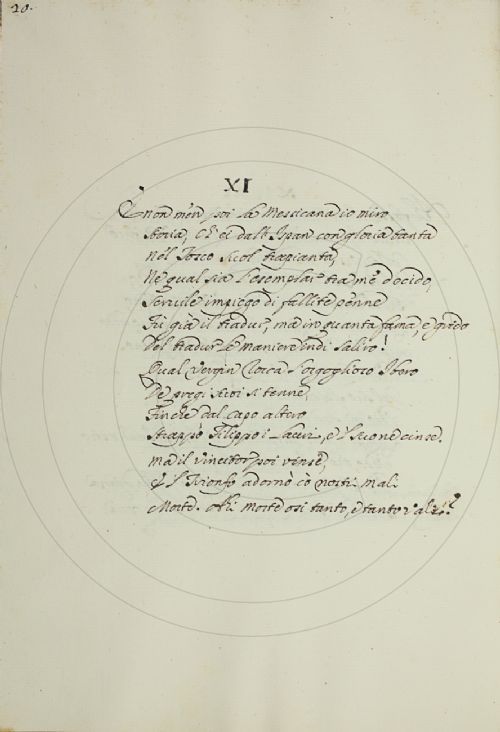 20.
XI
E non men poi la Messicana io miro
Storia, Ch' ei dall' Ispan con gloria tanta
Nel Tosco suol trapianta;
Ne qual sia l'esemplar tra me decido,
Servile impiego di fallite penne
Fù già il tradur, ma in quanta fama, e grido
Del tradur le maniere indi saliro!
Qual Vergin Rocca l'orgoglioso Ibero
De pregi suoi si tenne,
Finche dal capo altero
Strappò Filippo i lauri, e se ne cinse.
Ma il Vincitor poi vinse,
E 'l Trionfo adornò co nostri mali
Morte. Ahi morte osi tanto, e tanto vali?